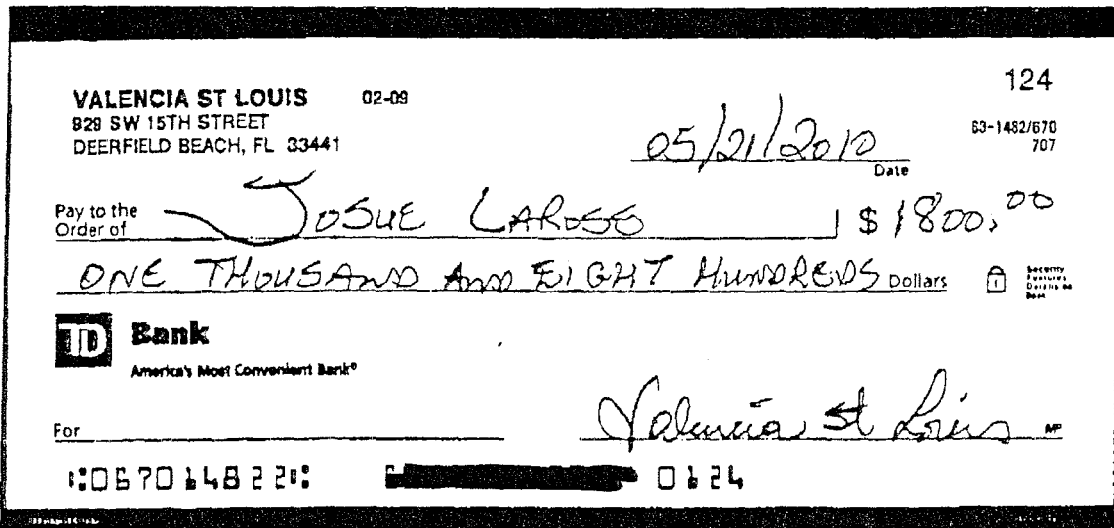 124
VALENCIA ST LOUIS 02-09
929 SW 15TH STREET
DEERFIELD BEACH, FL 33441
63-1482/670
707
05/21/2010
Date
Pay to the
Order of JOSUE LAROSE $ 1800,00
ONE THOUSAND AND EIGHT HUNDREDS Dollars
Security
Features
Details on
Back
TD Bank
America's Most Convenient Bank®
For Valencia St Louis MP
⑆067014822⑆ 0124